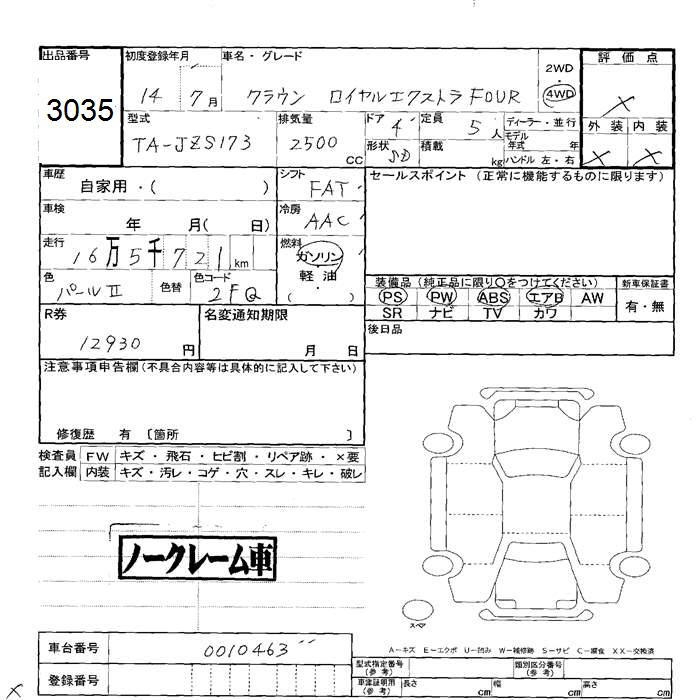 出品番号 初度登録年月 車名・グレード 2WD 評価点
3035 14 7月 クラウン ロイヤルエクストラ FOUR 4WD ×
型式 排気量 ドア 4 定員 5人 ディーラー・並行 外装 内装
TA-JZS173 2500cc 形状 SD 積載 kg モデル年式 年 × ×
ハンドル 左・右
車歴 自家用・( ) シフト FAT セールスポイント (正常に機能するものに限ります)
車検 年 月( 日) 冷房 AAC
走行 16万5千721km 燃料 ガソリン・軽油・( )
色 パールII 色替 色コード 2FQ 装備品 (純正品に限り○をつけてください) 新車保証書
PS PW ABS エアB AW 有・無
SR ナビ TV カワ
R券 12930円 名変通知期限 月 日 後日品
注意事項申告欄(不具合内容等は具体的に記入して下さい)
修復歴 有 〔箇所 〕
検査員 FW キズ・飛石・ヒビ割・リペア跡・×要
記入欄 内装 キズ・汚レ・コゲ・穴・スレ・キレ・破レ
ノークレーム車
スペア
A−キズ E−エクボ U−凹み W−補修跡 S−サビ C−腐食 XX−交換済
車台番号 0010463
型式指定番号(参考) 類別区分番号(参考)
登録番号 車庫証明用(参考) 長さ cm 幅 cm 高さ cm
×